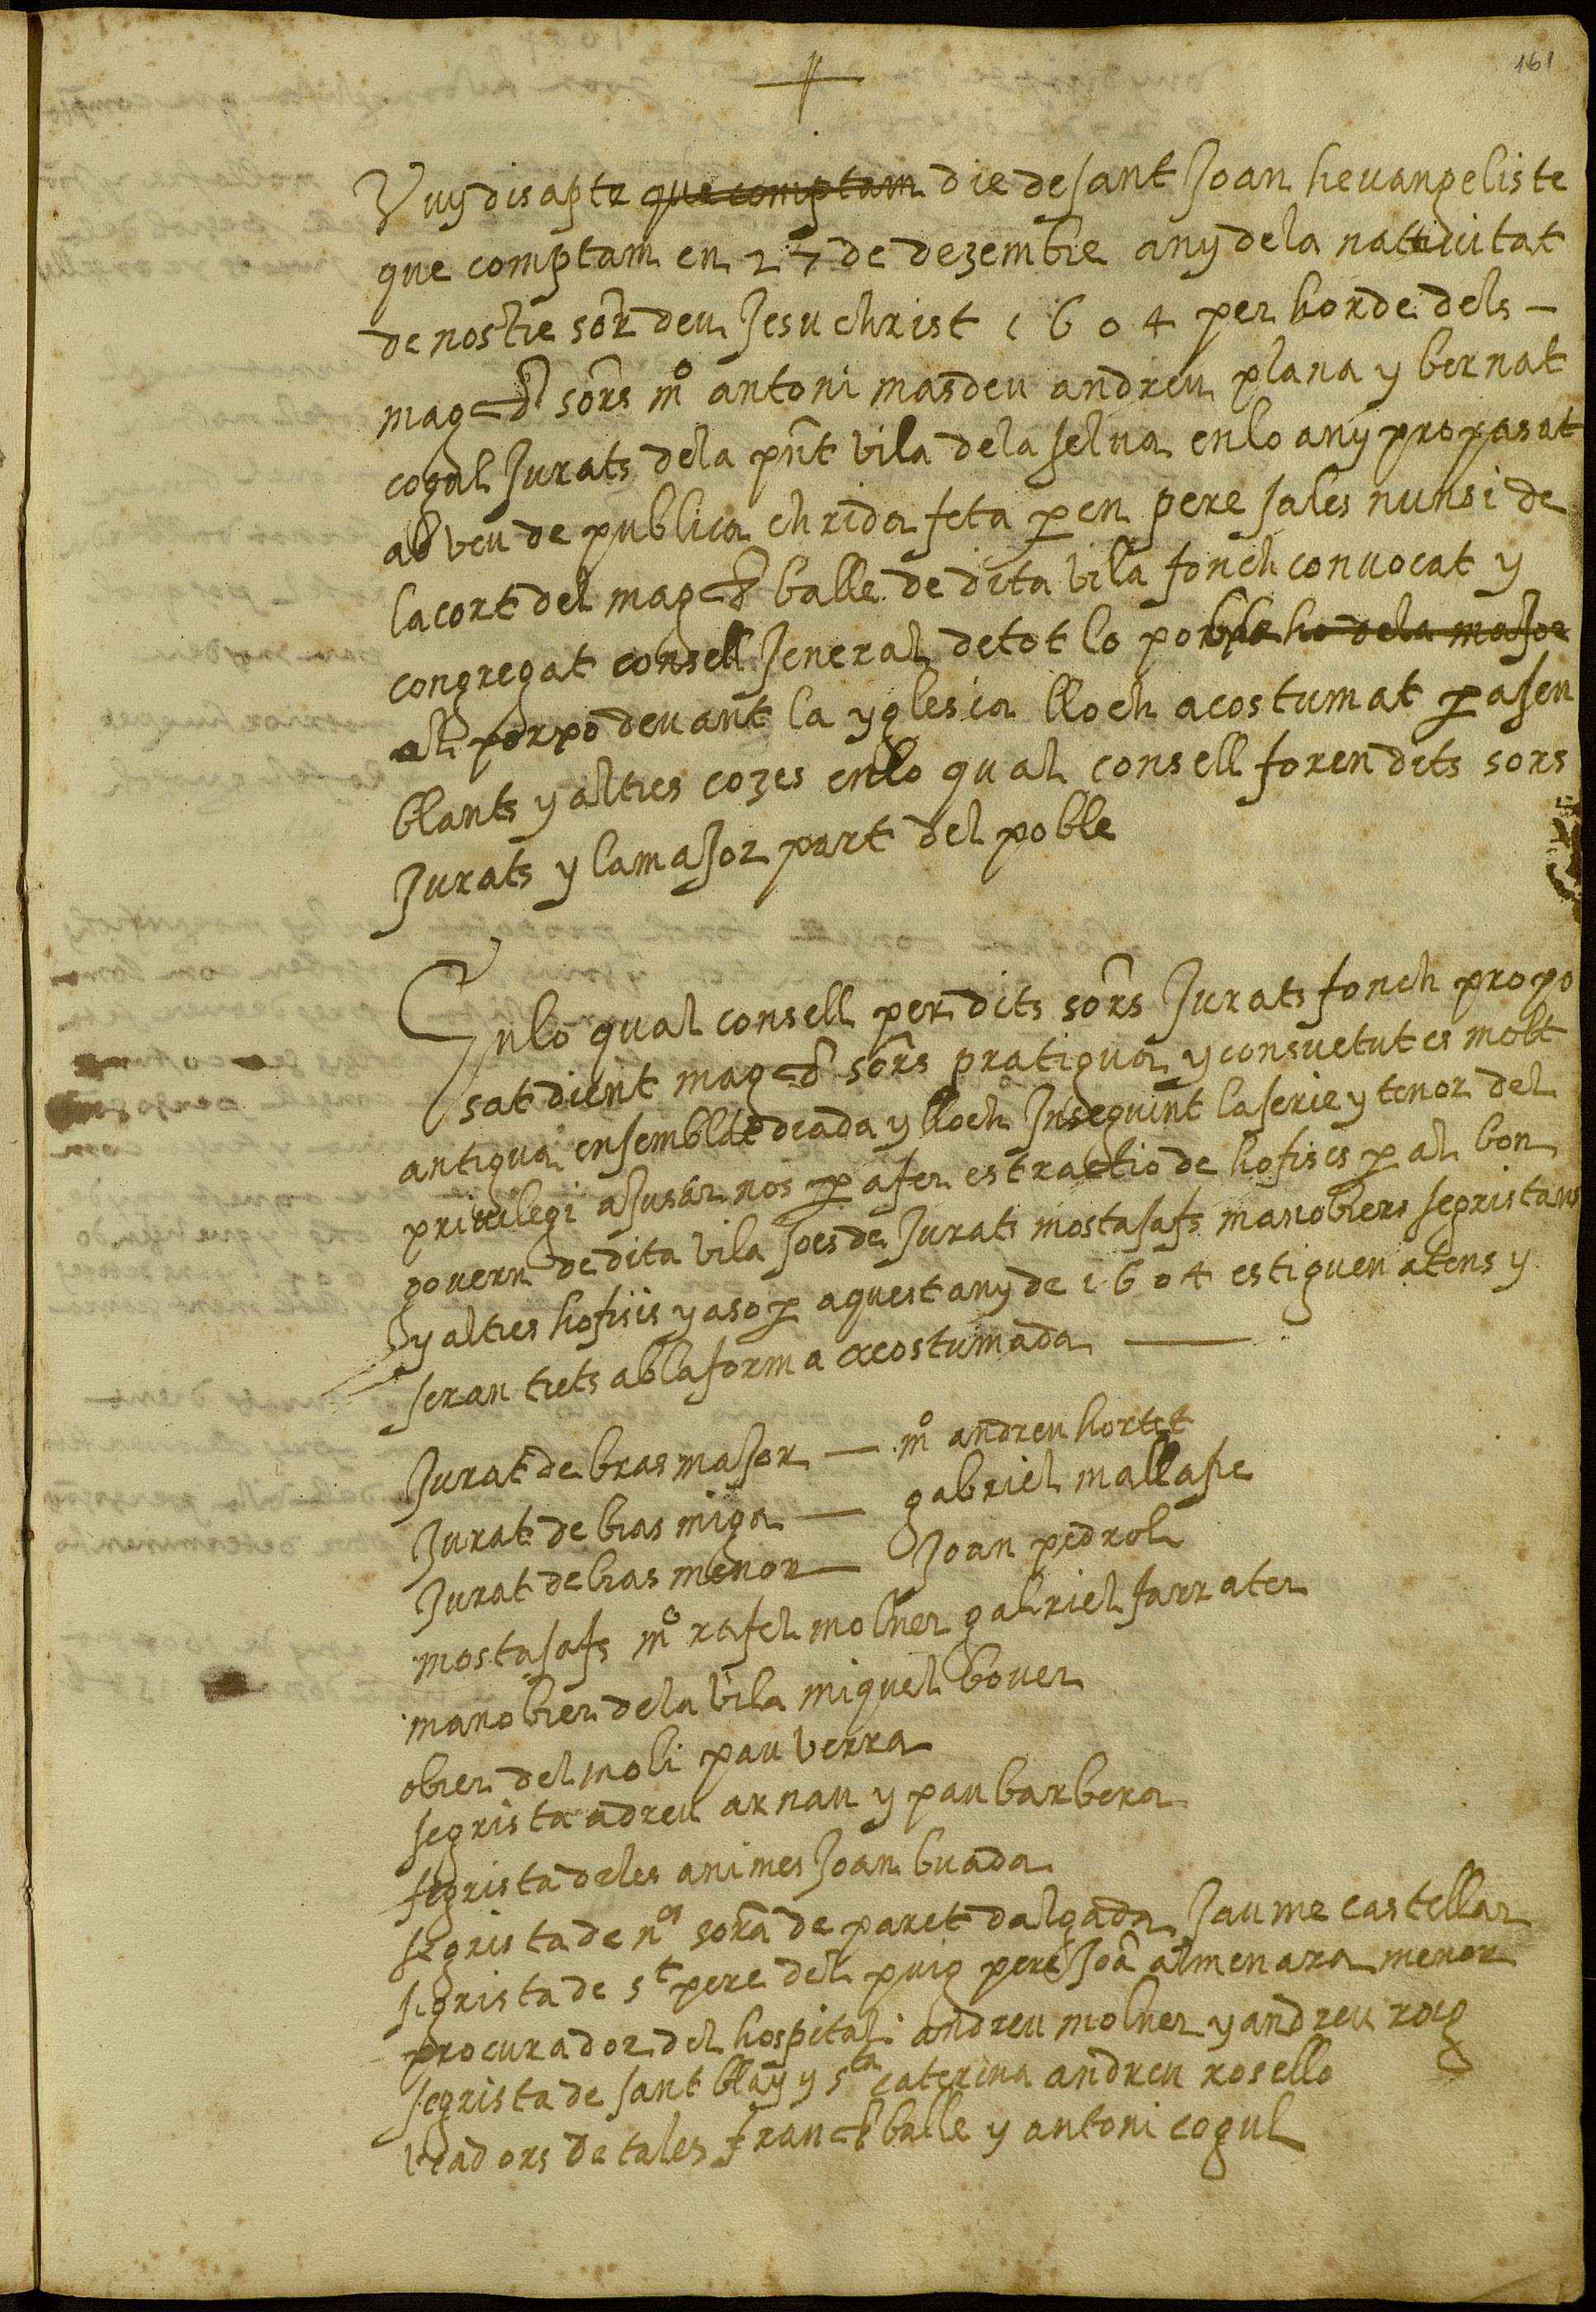 161
Vuy disapte que comptam die de sant Joan hevangeliste
que comptam en 27 de dezembre any dela nattivitat
de nostre sor deu Jesu christ 1604 per horde dels
magchs sors mº antoni masdeu andreu plana y bernat
cogul Jurats dela pnt vila dela selva en lo any propasat
ab veu de publica chrida feta per en pere sales nunsi de
la cort del magch balle de dita vila fonch convocat y
congregat consell Jeneral de tot lo poble ho dela major
al porpo devant la yglesia lloch acostumat per a sen
blants y altres cozes en lo qual consell foren dits sors
Jurats y la major part del poble
En lo qual consell per dits sors Jurats fonch propo
sat dient magchs sors pratiqua y consuetut es molt
antiqua en semblat diada y lloch Inseguint la serie y tenor del
privilegi ajustar nos per a fer estractio de hofisis per al bon
govern de dita vila so es de Jurats mostasafs manobrers segristans
y altres hofisis y aso per aquest any de 1604 estiguen atens y
seran trets ab la forma acostumada
Jurat de bras major — mº andreu hortet
Jurat de bras miga — gabriel mallafre
Jurat de bras menor — Joan pedrol
mostasafs mº rafel molner gabriel farrater
manobrer dela vila miquel bover
obrer del moli pau verra
segrista adreu arnau y pau barbera
segrista deles animes Joan buada
segrista de nª sora de paret dalgada Jaume castellar
segrista de st pere del puig pere Joa almenara menor
procurador del hospital andreu molner y andreu roig
segrista de sant blay y sta caterina andreu rosello
veadors de tales franch balle y antoni cogul